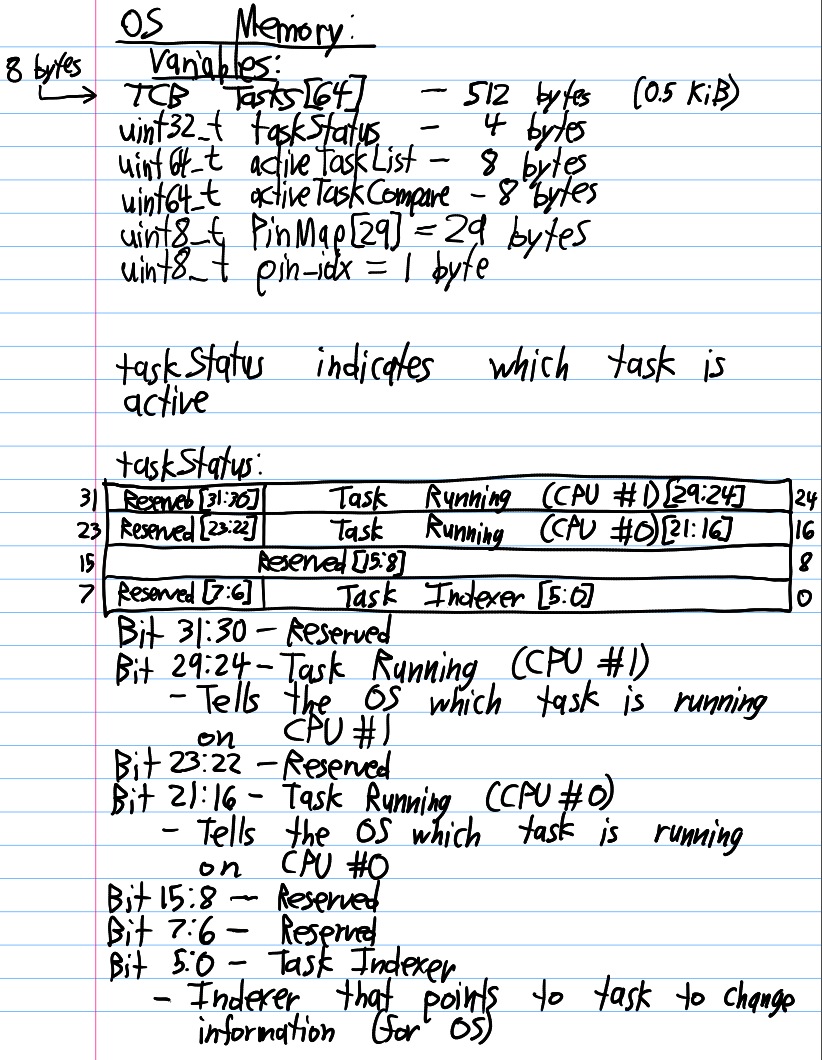 OS Memory:
Variables:
8 bytes
TCB Tasks[64] - 512 bytes (0.5 KiB)
uint32_t taskStatus - 4 bytes
uint64_t activeTaskList - 8 bytes
uint64_t activeTaskCompare - 8 bytes
uint8_t PinMap[29] = 29 bytes
uint8_t pin_idx = 1 byte
taskStatus indicates which task is
active
taskStatus:
31 Reserved [31:30] Task Running (CPU #1)[29:24] 24
23 Reserved [23:22] Task Running (CPU #0)[21:16] 16
15 Reserved [15:8] 8
7 Reserved [7:6] Task Indexer [5:0] 0
Bit 31:30 - Reserved
Bit 29:24 - Task Running (CPU #1)
- Tells the OS which task is running
on CPU #1
Bit 23:22 - Reserved
Bit 21:16 - Task Running (CPU #0)
- Tells the OS which task is running
on CPU #0
Bit 15:8 - Reserved
Bit 7:6 - Reserved
Bit 5:0 - Task Indexer
- Indexer that points to task to change
information (for OS)